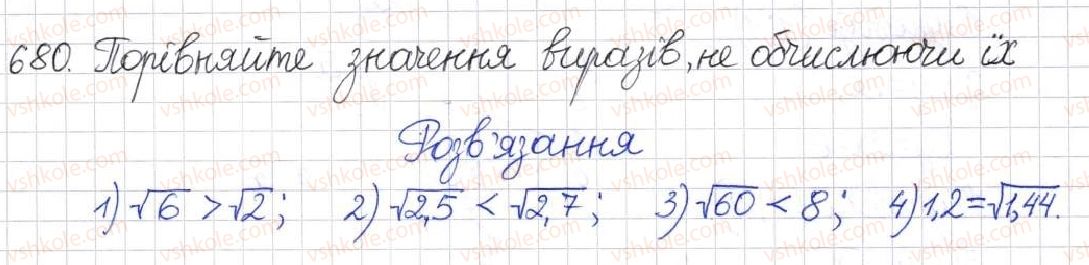 680. Порівняйте значення виразів, не обчислюючи їх
Розв'язання
1) √6 > √2; 2) √2,5 < √2,7; 3) √60 < 8; 4) 1,2 = √1,44.